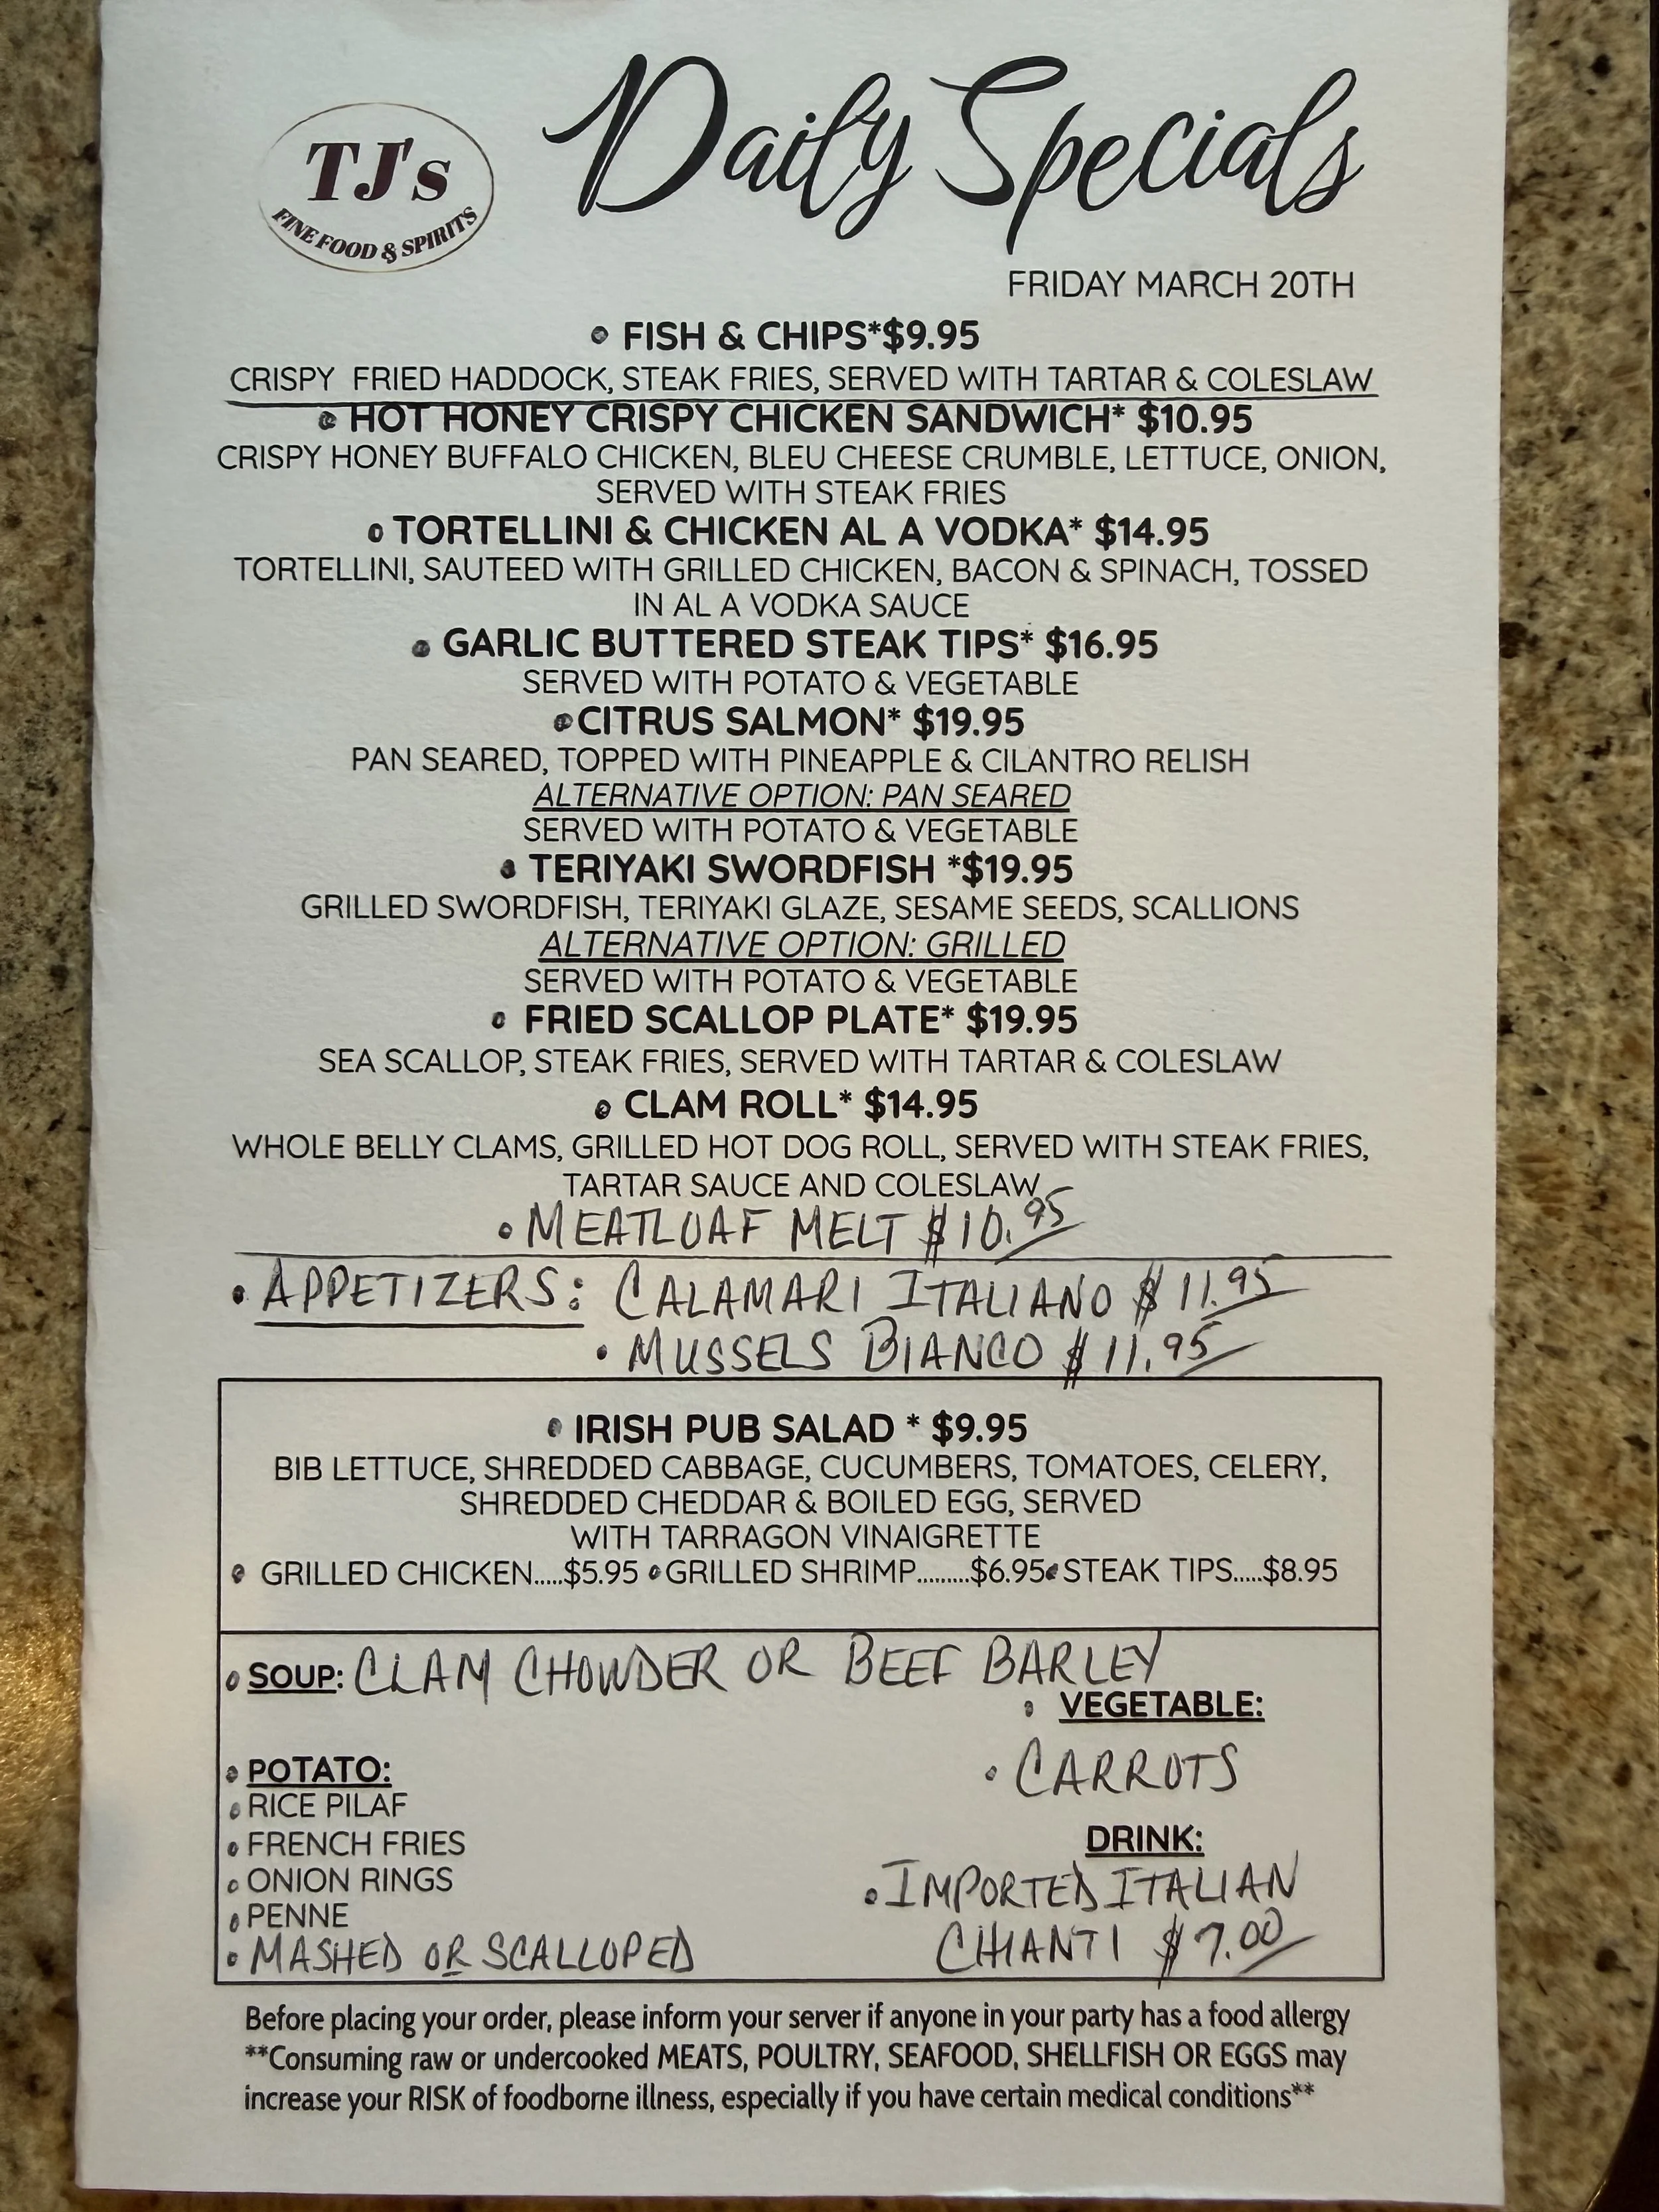 TJ's
FINE FOOD & SPIRITS
Daily Specials
FRIDAY MARCH 20TH
• FISH & CHIPS*$9.95
CRISPY FRIED HADDOCK, STEAK FRIES, SERVED WITH TARTAR & COLESLAW
• HOT HONEY CRISPY CHICKEN SANDWICH* $10.95
CRISPY HONEY BUFFALO CHICKEN, BLEU CHEESE CRUMBLE, LETTUCE, ONION,
SERVED WITH STEAK FRIES
• TORTELLINI & CHICKEN AL A VODKA* $14.95
TORTELLINI, SAUTEED WITH GRILLED CHICKEN, BACON & SPINACH, TOSSED
IN AL A VODKA SAUCE
• GARLIC BUTTERED STEAK TIPS* $16.95
SERVED WITH POTATO & VEGETABLE
• CITRUS SALMON* $19.95
PAN SEARED, TOPPED WITH PINEAPPLE & CILANTRO RELISH
ALTERNATIVE OPTION: PAN SEARED
SERVED WITH POTATO & VEGETABLE
• TERIYAKI SWORDFISH *$19.95
GRILLED SWORDFISH, TERIYAKI GLAZE, SESAME SEEDS, SCALLIONS
ALTERNATIVE OPTION: GRILLED
SERVED WITH POTATO & VEGETABLE
• FRIED SCALLOP PLATE* $19.95
SEA SCALLOP, STEAK FRIES, SERVED WITH TARTAR & COLESLAW
• CLAM ROLL* $14.95
WHOLE BELLY CLAMS, GRILLED HOT DOG ROLL, SERVED WITH STEAK FRIES,
TARTAR SAUCE AND COLESLAW
• MEATLOAF MELT $10.95
• APPETIZERS: CALAMARI ITALIANO $11.95
• MUSSELS BIANCO $11.95
• IRISH PUB SALAD * $9.95
BIB LETTUCE, SHREDDED CABBAGE, CUCUMBERS, TOMATOES, CELERY,
SHREDDED CHEDDAR & BOILED EGG, SERVED
WITH TARRAGON VINAIGRETTE
• GRILLED CHICKEN.....$5.95 • GRILLED SHRIMP.........$6.95 • STEAK TIPS.....$8.95
• SOUP: CLAM CHOWDER OR BEEF BARLEY
• VEGETABLE:
• CARROTS
• POTATO:
• RICE PILAF
• FRENCH FRIES
• ONION RINGS
• PENNE
• MASHED OR SCALLOPED
DRINK:
• IMPORTED ITALIAN
CHIANTI $7.00
Before placing your order, please inform your server if anyone in your party has a food allergy
**Consuming raw or undercooked MEATS, POULTRY, SEAFOOD, SHELLFISH OR EGGS may
increase your RISK of foodborne illness, especially if you have certain medical conditions**